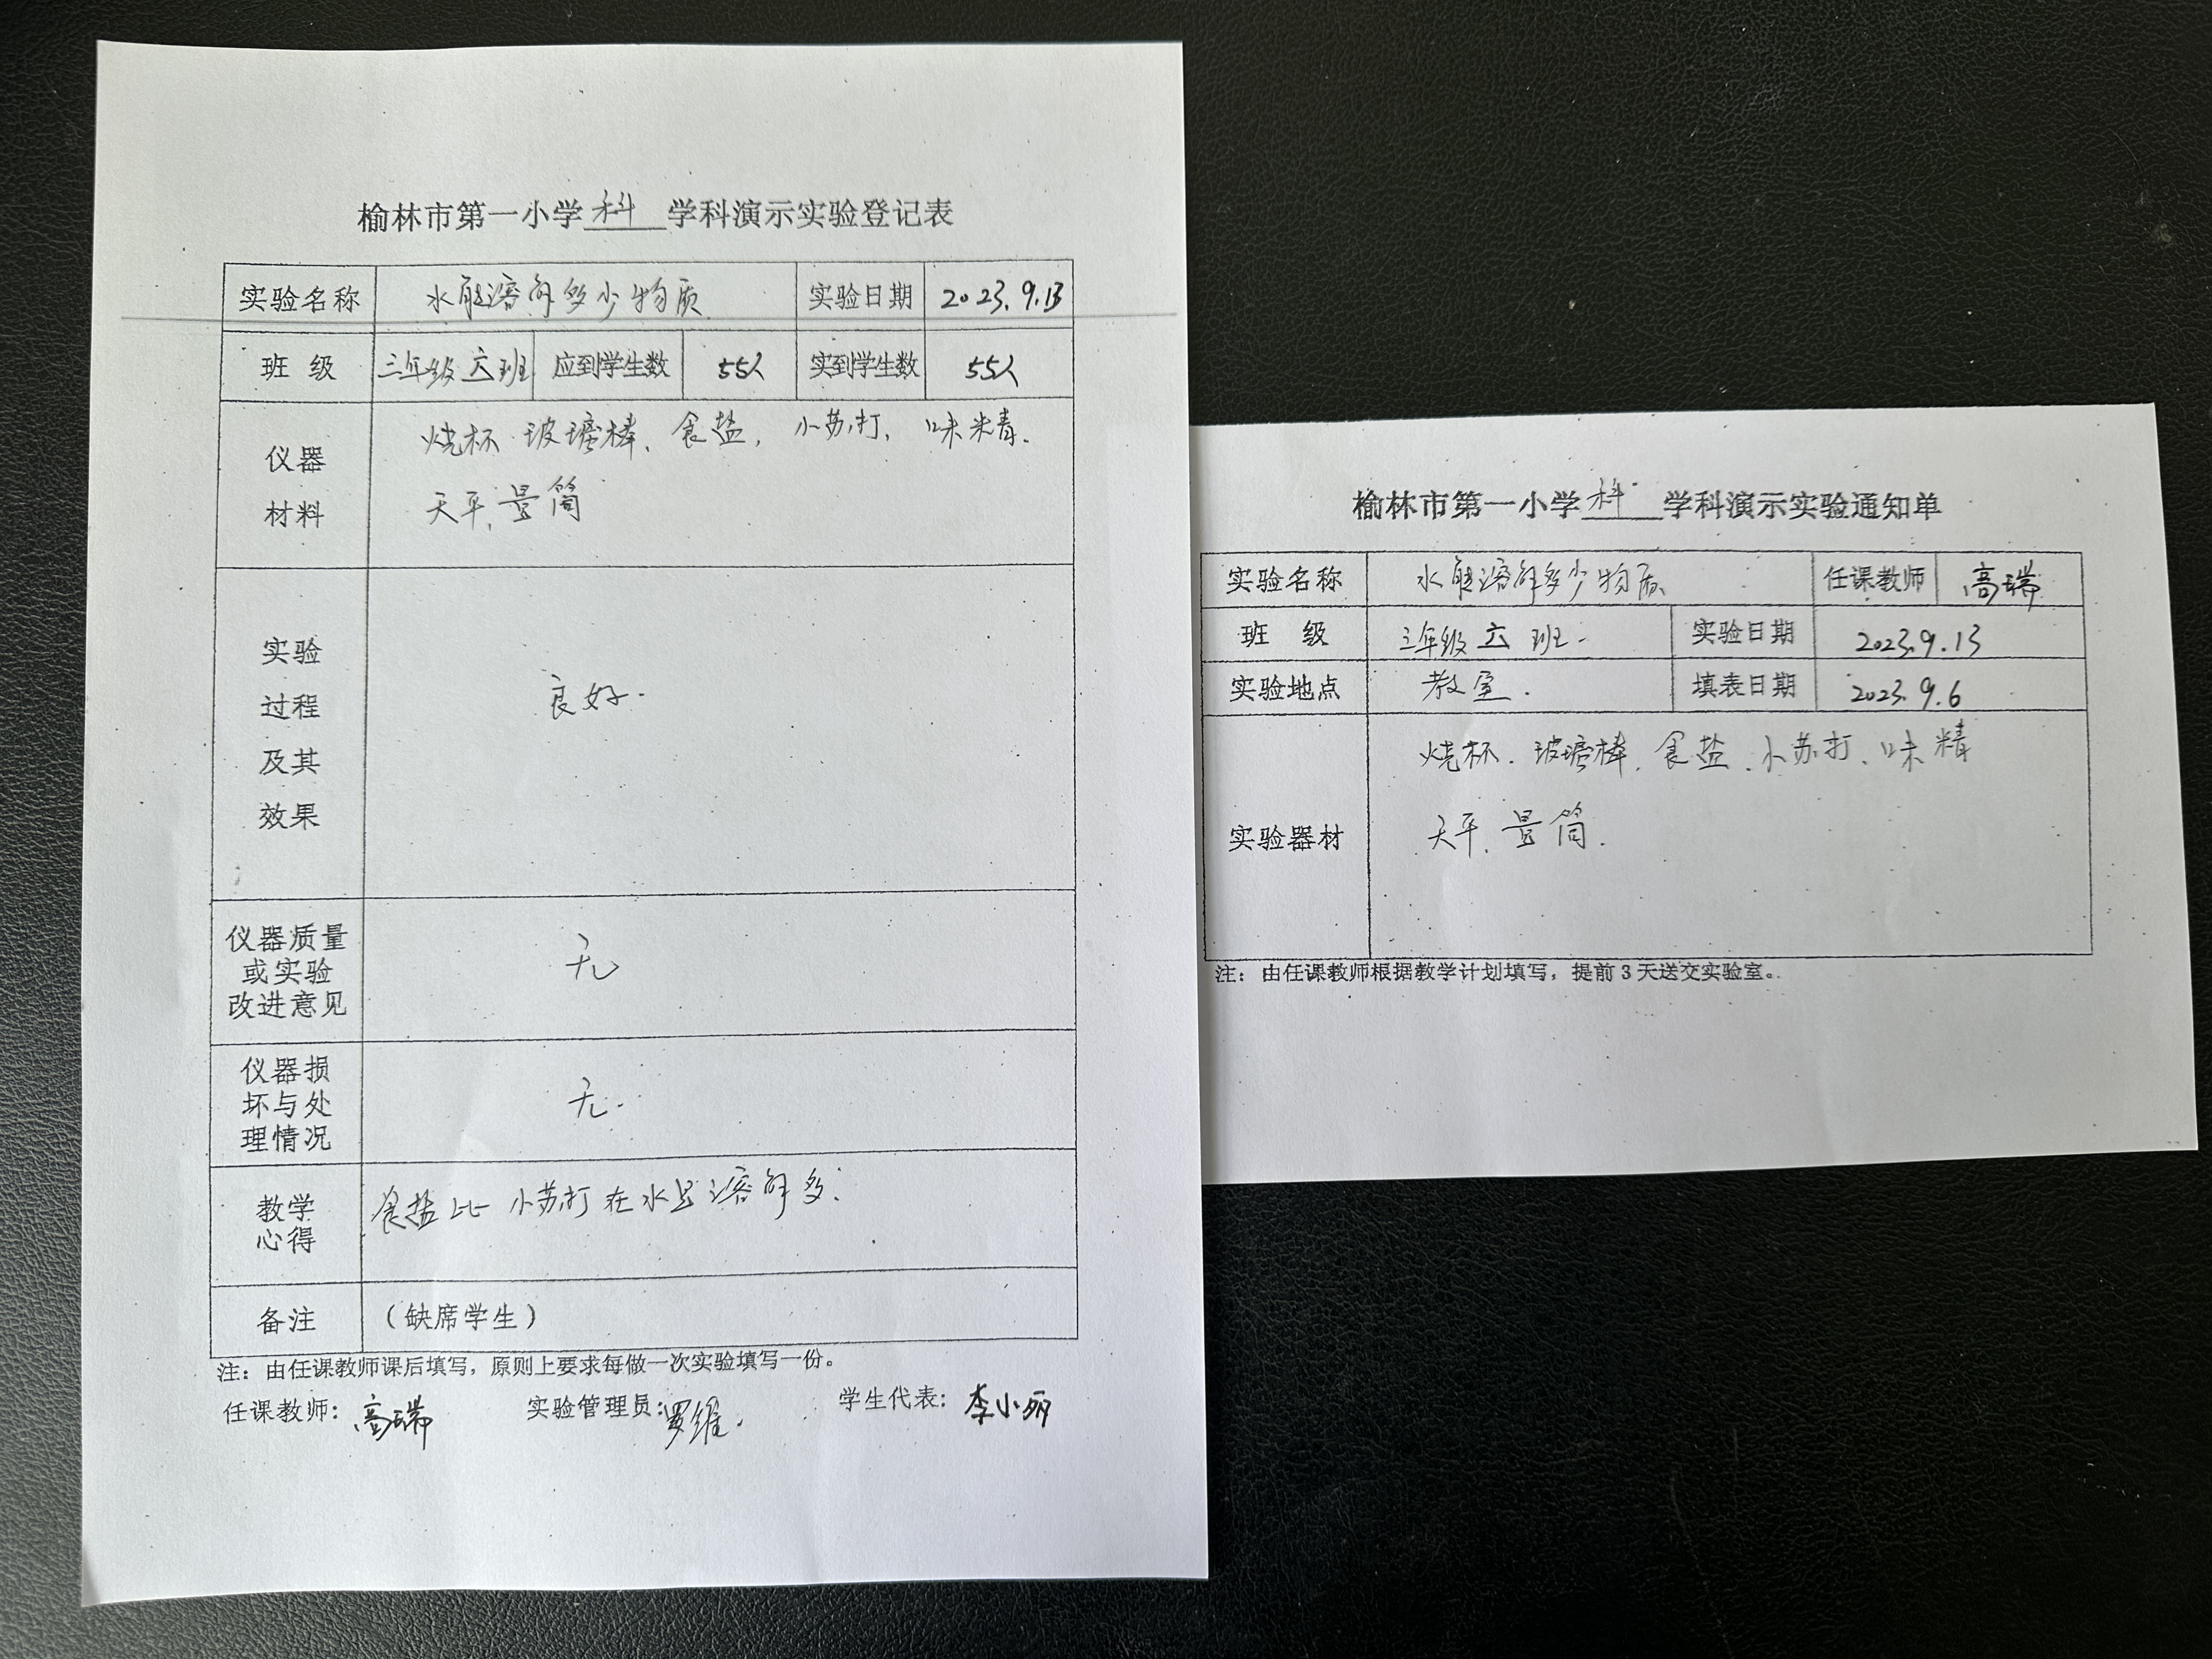 榆林市第一小学科学科演示实验登记表
实验名称 水能溶解多少物质 实验日期 2023.9.13
班 级 三年级六班 应到学生数 55人 实到学生数 55人
仪器
材料
烧杯 玻璃棒、食盐、小苏打、味精.
天平、量筒
实验
过程
及其
效果
良好.
仪器质量
或实验
改进意见
无
仪器损
坏与处
理情况
无.
教学
心得
食盐比小苏打在水里溶解多.
备注 （缺席学生）
注：由任课教师课后填写，原则上要求每做一次实验填写一份。
任课教师：高瑞 实验管理员：罗维. 学生代表：李小丽
榆林市第一小学科学科演示实验通知单
实验名称 水能溶解多少物质 任课教师 高瑞
班 级 三年级六班. 实验日期 2023.9.13
实验地点 教室. 填表日期 2023.9.6
实验器材
烧杯、玻璃棒、食盐、小苏打、味精
天平、量筒.
注：由任课教师根据教学计划填写，提前3天送交实验室。